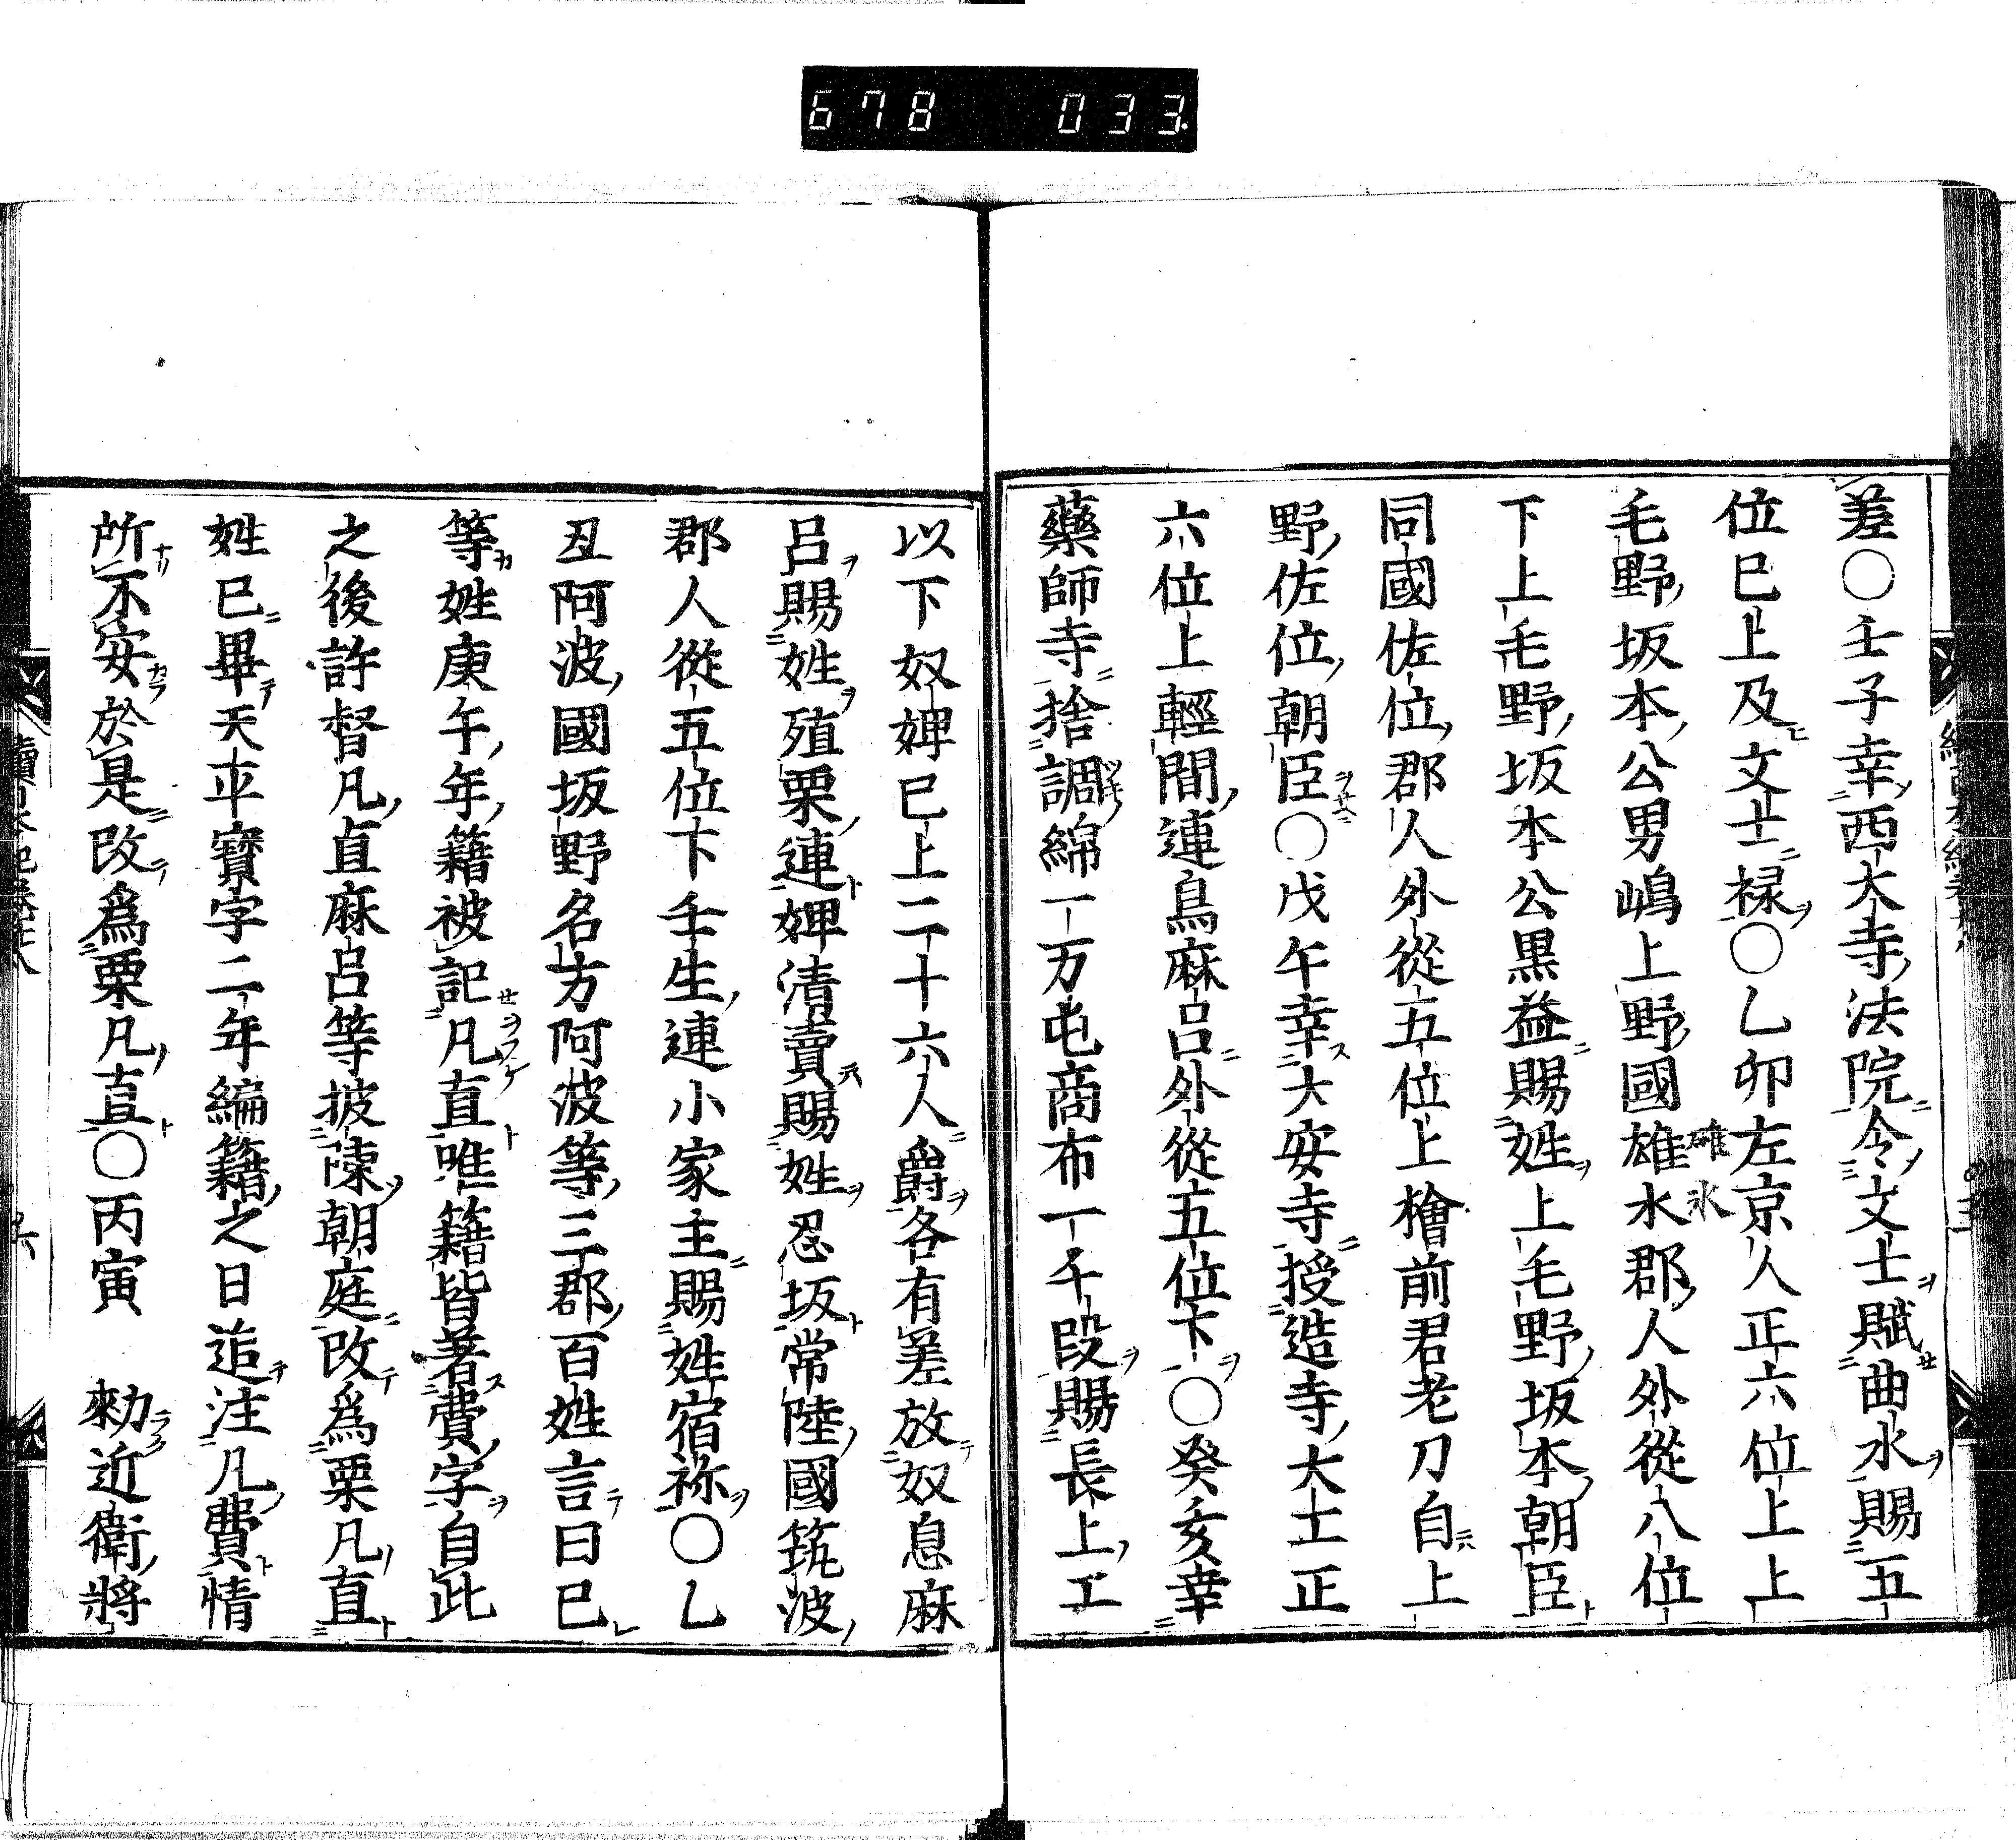 678 033
差〇壬子幸西大寺法院令文士賦曲水賜五
位已上及文士禄〇乙卯左京人正六位上上
毛野坂本公男嶋上野國雄水郡人外從八位
碓氷
下上毛野坂本公黒益賜姓上毛野坂本朝臣
同國佐位郡人外從五位上檜前君老刀自上
野佐位朝臣〇戊午幸大安寺授造寺大工正
六位上輕間連鳥麻呂外從五位下〇癸亥幸
藥師寺捨調綿一万屯商布一千段賜長上工
以下奴婢已上二十六人爵各有差放奴息麻
呂賜姓殖栗連婢清賣賜姓忍坂常陸國筑波
郡人從五位下壬生連小家主賜姓宿祢〇乙
丑阿波國坂野名方阿波等三郡百姓言曰已
等姓庚午年籍被記凡直唯籍皆著費字自此
之後許督凡直麻呂等披陳朝庭改爲粟凡直
姓已畢天平寳字二年編籍之日追注凡費情
所不安於是改爲粟凡直〇丙寅 勑近衛將